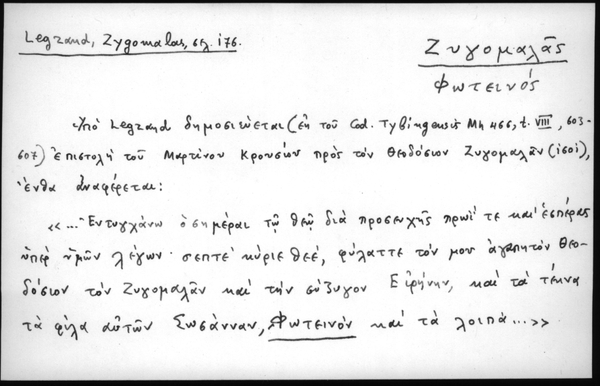 Legrand, Zygomalas, σελ. 176.
Ζυγομαλᾶς
Φωτεινός
Ἀπό Legrand δημοσιεύεται (ἐκ τοῦ Cod. Tybingensis Mh 466, t. VIII, 603-
607) ἐπιστολή τοῦ Μαρτίνου Κρουσίου πρὸς τὸν Θεοδόσιον Ζυγομαλᾶν (ἰδοί),
ἔνθα ἀναφέρεται:
«...Ἐντυγχάνω ὁσημέραι τῷ θεῷ διὰ προσευχῆς πρωΐ τε καὶ ἑσπέρας
ὑπὲρ ὑμῶν λέγων· σεπτέ κύριε θεέ, φύλαττε τόν μου ἀγαπητὸν Θεο-
δόσιον τὸν Ζυγομαλᾶν καὶ τὴν σύζυγον Εἰρήνην, καὶ τὰ τέκνα
τὰ φίλα αὐτῶν Σωσάνναν, Φωτεινὸν καὶ τὰ λοιπά...»